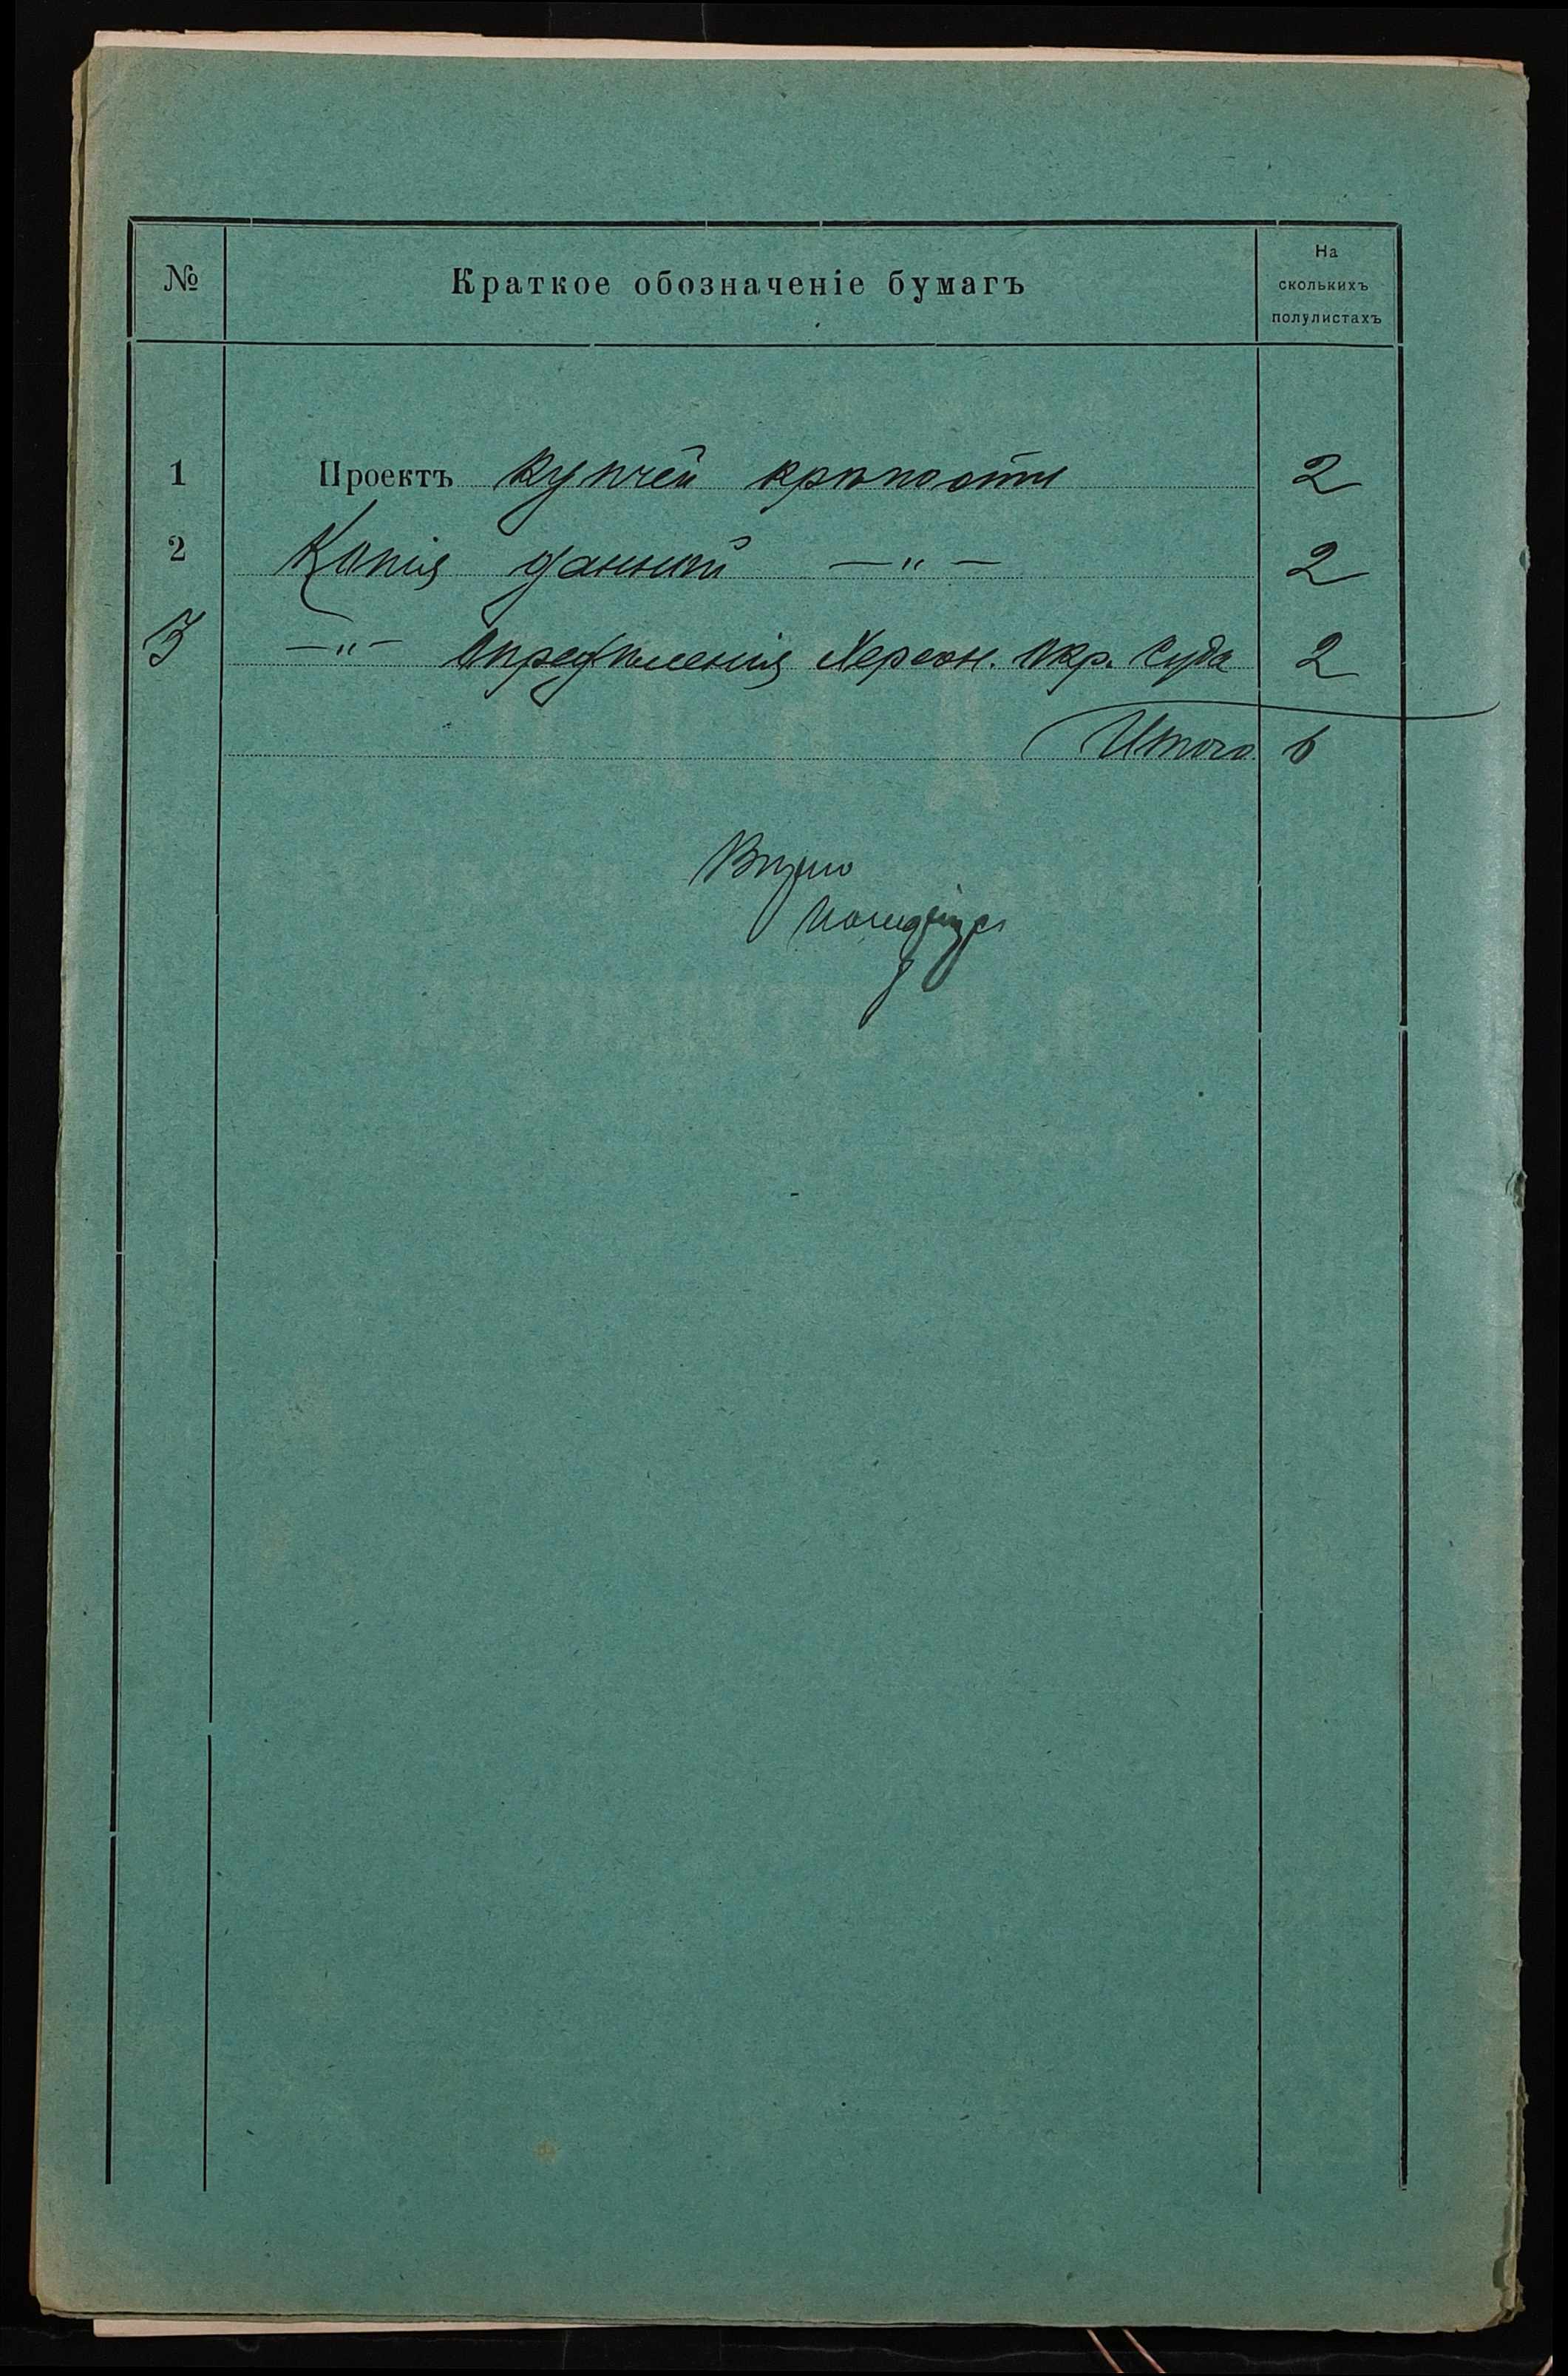 № Краткое обозначеніе бумагъ На сколькихъ полулистахъ
1 Проектъ купчей крѣпости 2
2 Копія данной —"— 2
3 —"— опредѣленія Херсон. Окр. Суда 2
Итого 6
Вѣрно